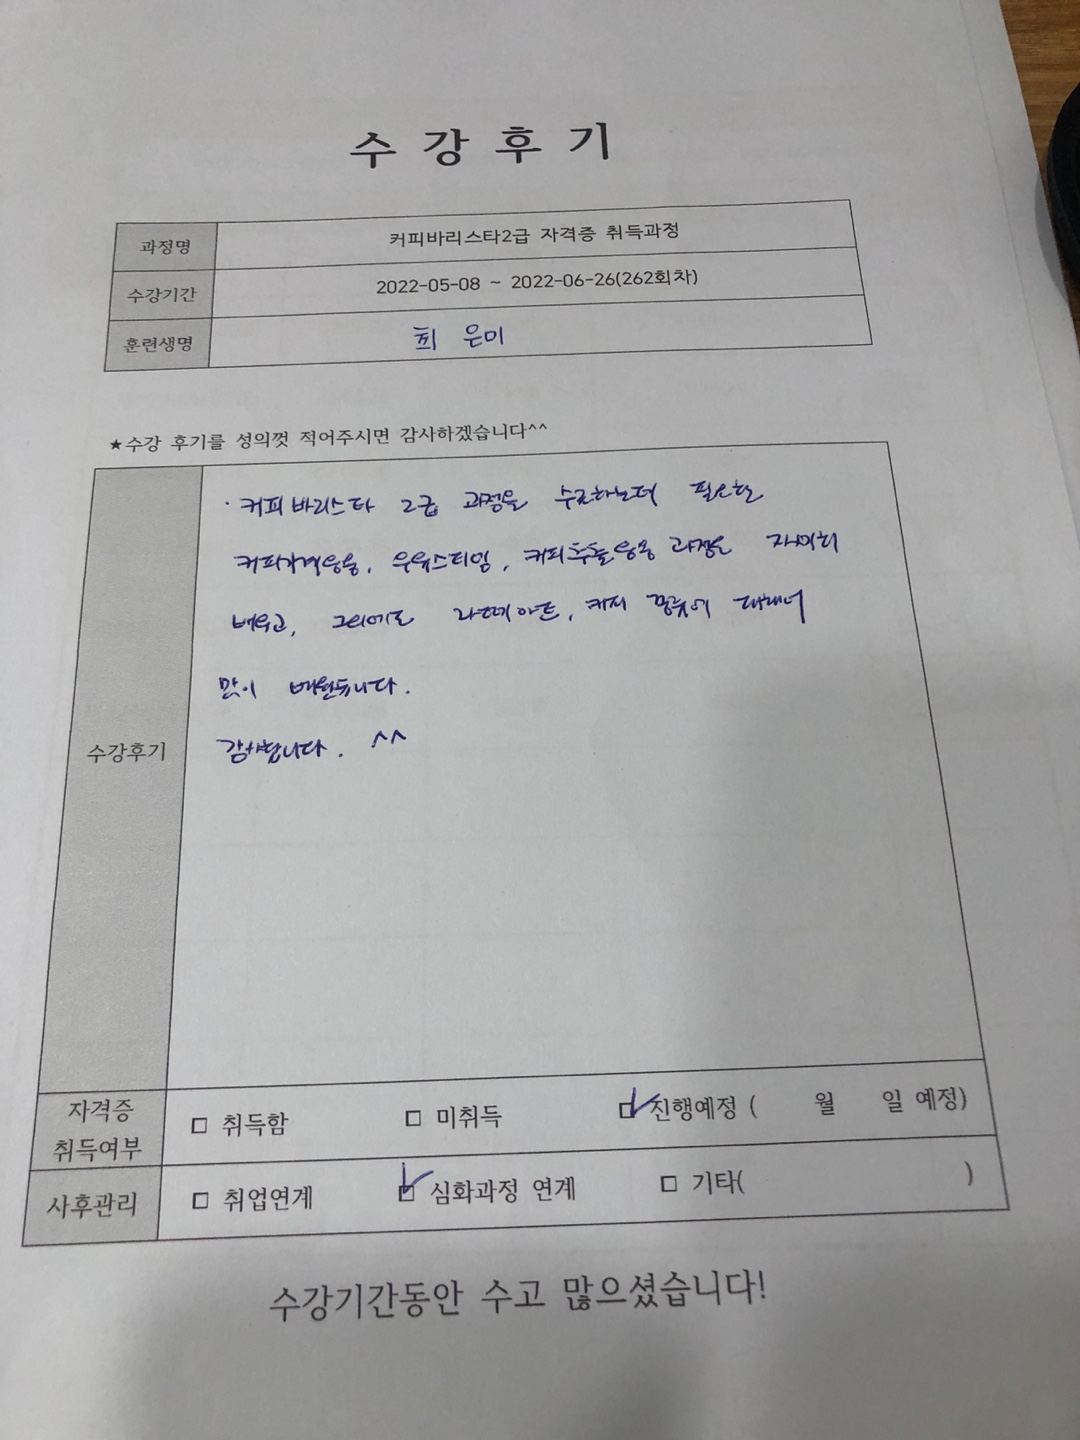 수강후기
과정명 커피바리스타2급 자격증 취득과정
수강기간 2022-05-08 ~ 2022-06-26(262회차)
훈련생명 은미
★수강 후기를 성의껏 적어주시면 감사하겠습니다^^
· 커피바리스타 2급 과정을 수료하는데 필요한
우유스티밍, 커피추출응용 과정을 재미있
배우고, 그외에도 라떼아트, 커피 대해서
많이 배웠습니다.
감사합니다. ^^
수강후기
자격증
취득여부
□ 취득함 □ 미취득 ☑ 진행예정 ( 월 일 예정)
사후관리 □ 취업연계 ☑ 심화과정 연계 □ 기타( )
수강기간동안 수고 많으셨습니다!